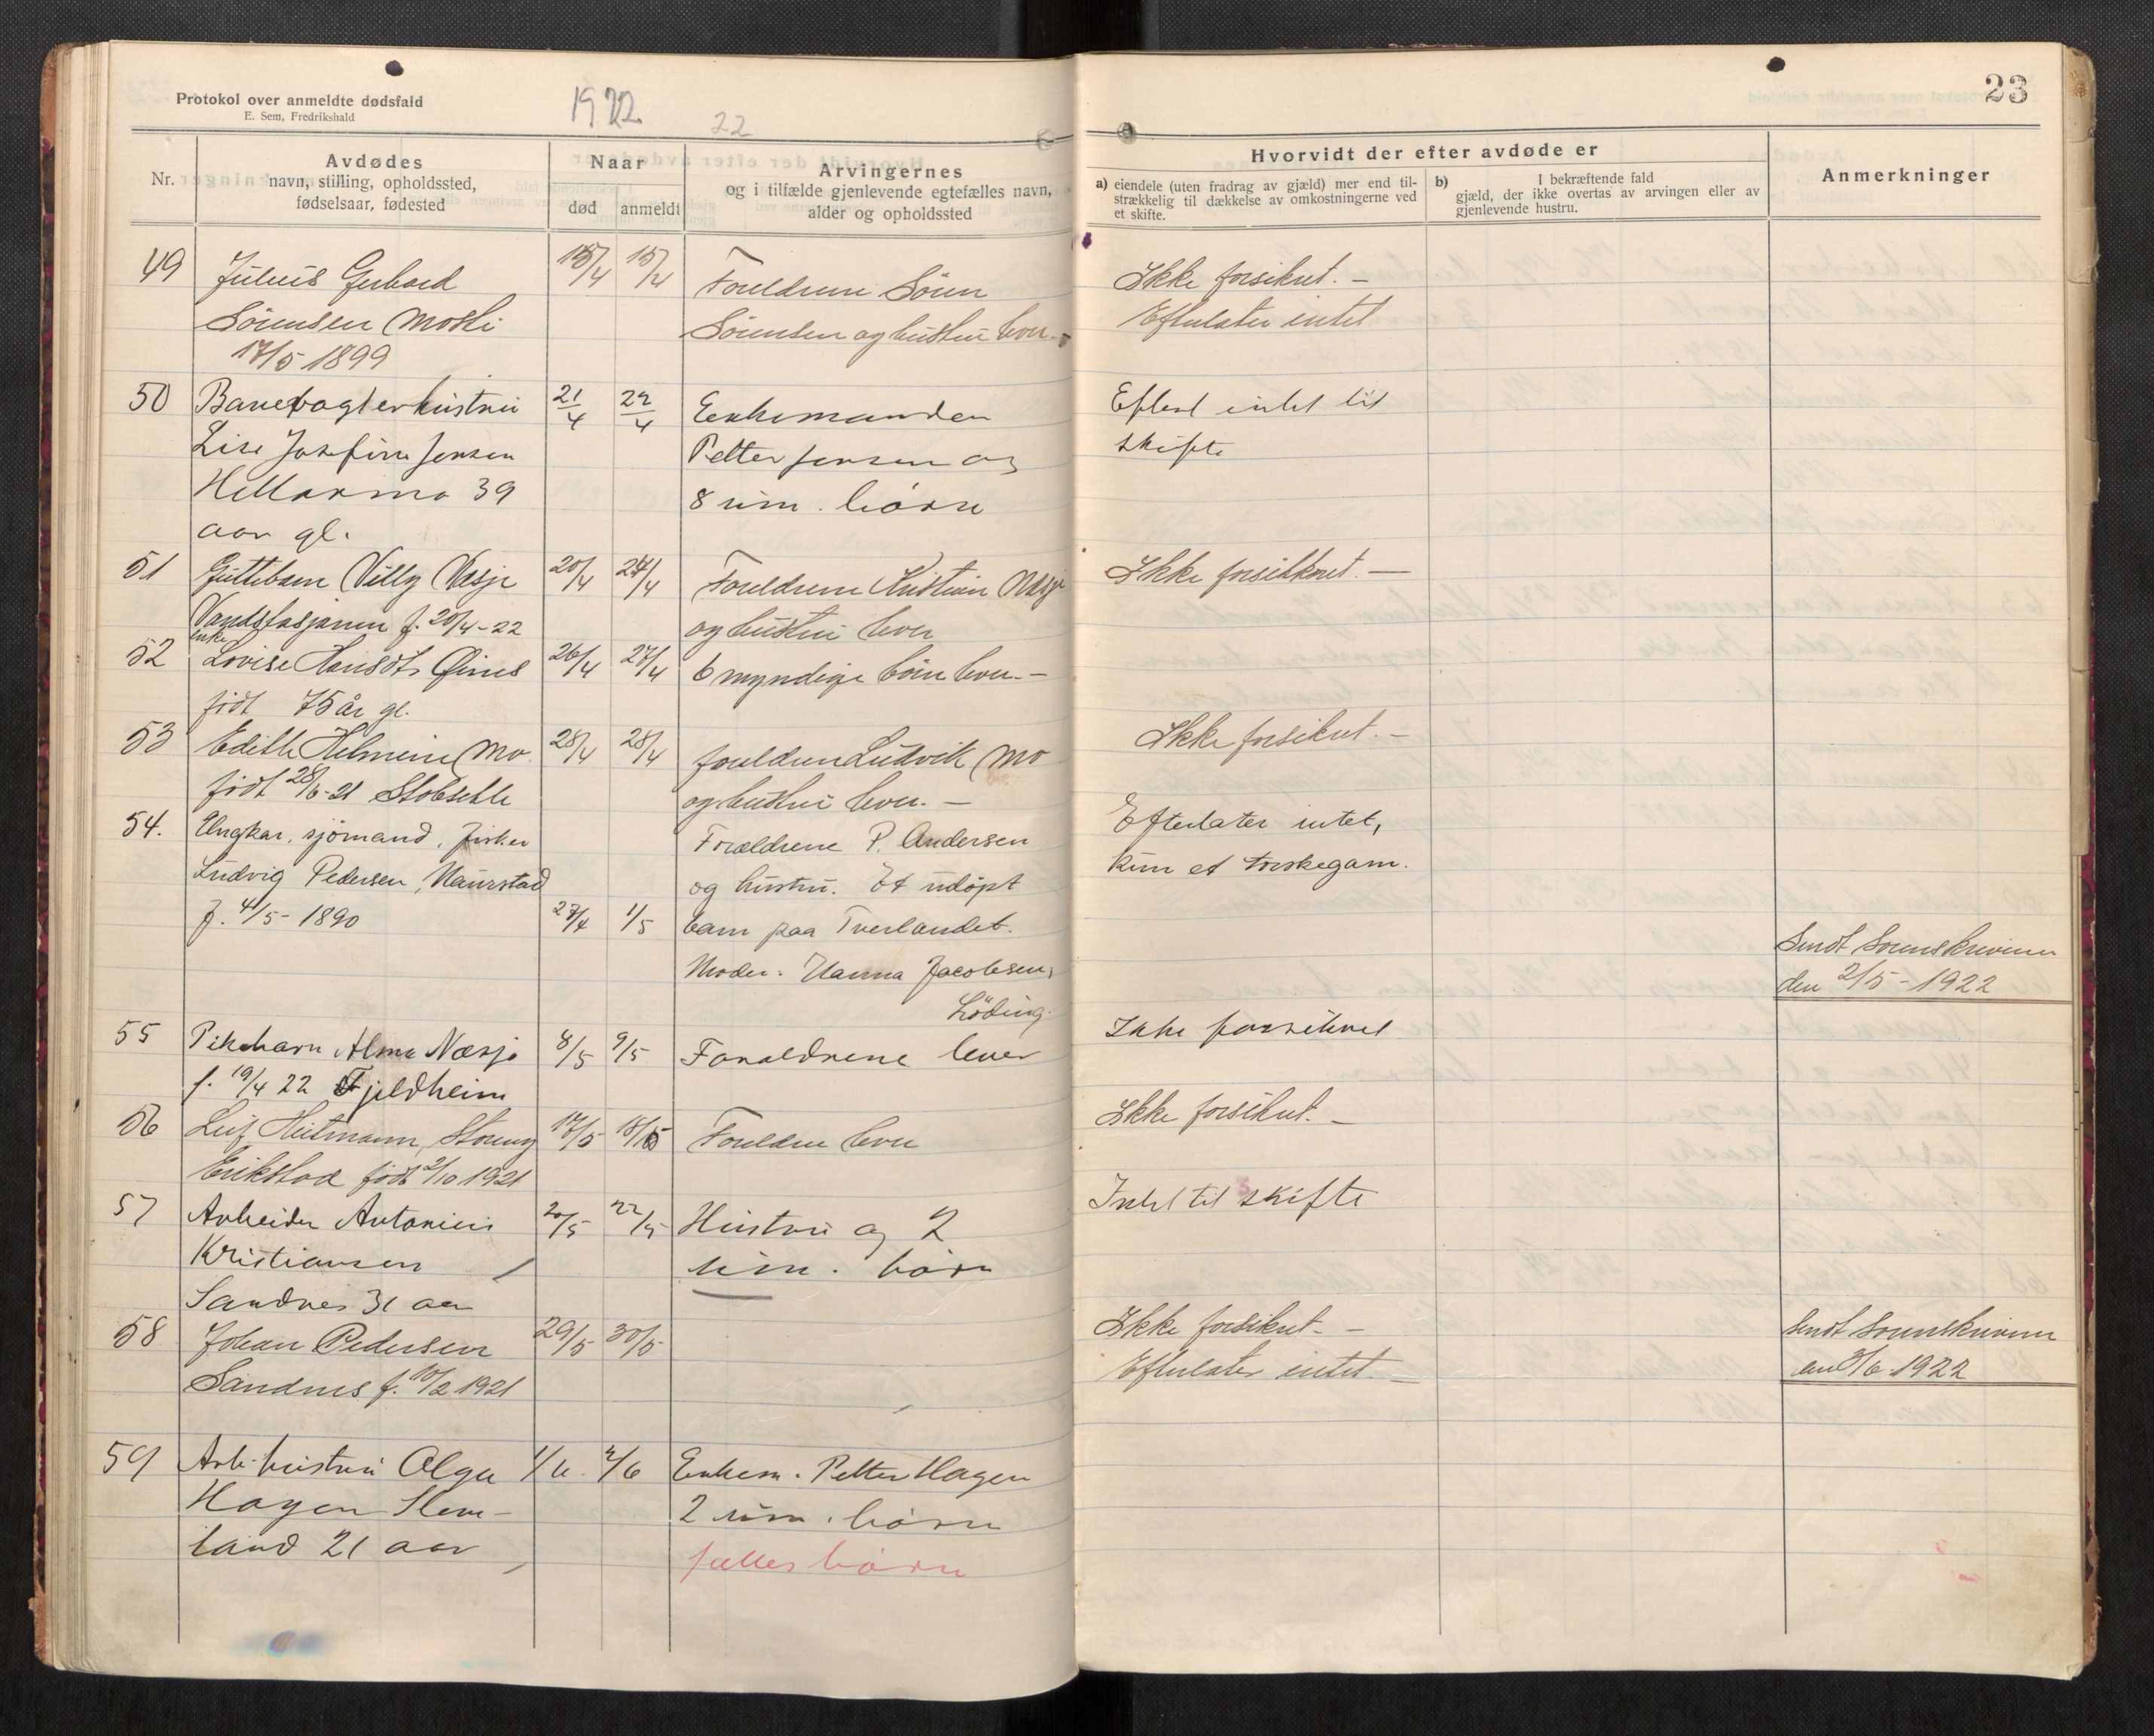 Protokol over anmeldte dødsfald
E. Sem, Fredrikshald
1922
22
23
Nr.
Avdødes
navn, stilling, opholdssted,
fødselsaar, fødested
Naar
død
anmeldt
Arvingernes
og i tilfælde gjenlevende egtefælles navn,
alder og opholdssted
Hvorvidt der efter avdøde er
a) eiendele (uten fradrag av gjæld) mer end til-
strækkelig til dækkelse av omkostningerne ved
et skifte.
b) I bekræftende fald
gjæld, der ikke overtas av arvingen eller av
gjenlevende hustru.
Anmerkninger
49 Julius Gerhard 15/4 15/4 Foreldrene Søren Ikke forsikret. –
Sørensen Efterlater intet
Sørensen og hustru lever
17/5 1899
50 Banevogterhustru 21/4 22/4 Enkemanden Efterl intet til
Lise Josefine Jensen Petter Jensen og skifte
Hellarmo 39 8 um. børn
aar gl.
51 Guttebarn Villy Næsje 20/4 24/4 Foreldrene Kristian Næsje Ikke forsikkret. –
f. 20/4-22 og hustru lever
enke
52 Lovise Hansdtr 26/4 27/4 6 myndige børn lever. –
født 75 år gl.
53 Edith Helmine Mo 28/4 28/4 foreldrene Ludvik Mo Ikke forsikret. –
født 28/6-21 og hustru lever. –
54. Ungkar, sjömand, fisker Forældrene P. Andersen Efterlater intet,
Ludvig Pedersen, Naurstad og hustru. Et udöpt kun et torskegarn.
f. 4/5-1890 27/4 1/5 barn paa Tverlandet.
Sendt Sorenskriveren
Moder: Hanna Jacobsen, den 2/5-1922
Löding.
55 Pikebarn Alma Næsje 8/5 9/5 Foraldrene lever Ikke forsikret
f. 19/4 22 Fjeldheim
56 Leif Heitmann Storeng 17/5 18/5 Foreldre lever Ikke forsikret. –
Erikstad født 2/10 1921
57 Arbeider Antonius 20/5 22/5 Hustru og 2 Intet til skifte
Kristiansen um. børn
Sandnes 31 aar
58 Johan Pedersen 29/5 30/5 Ikke forsikret. – Sendt Sorenskriveren
Sandnes f. 10/2 1921 Efterlater intet. – den 3/6-1922
59 Arb.hustru Olga 1/6 2/6 Enkem. Petter Hagen
Hagen 2 um. børn
land 21 aar
fælles børn